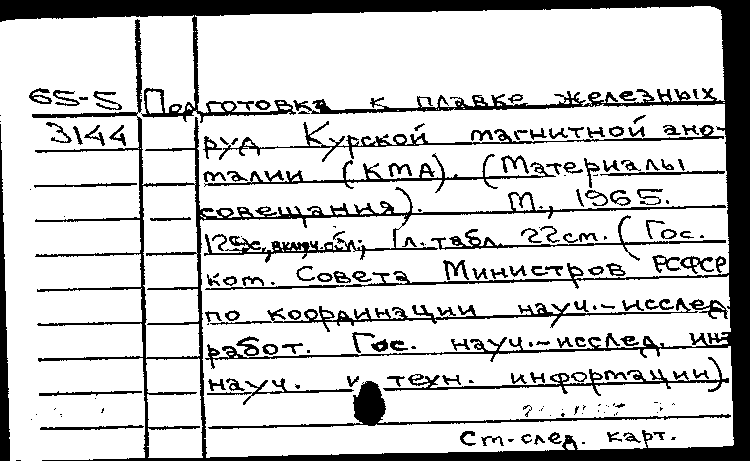 65-5 Подготовка к плавке железных
3144 руд Курской магнитной ано-
малии (КМА). (Материалы
совещания). М., 1965.
включ. обл.; 1 л. табл. 22 см. (Гос.
ком. Совета Министров РСФСР
по координации науч.-исслед.
работ. Гос. науч.-исслед. ин-т
науч. и техн. информации).
Ст. след. карт.